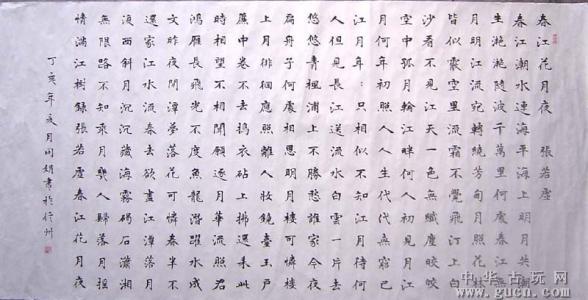 春江花月夜 張若虛
春江潮水連海平海上明月共潮
生灩灩隨波千萬里何處春江無
月明江流宛轉繞芳甸月照花林
皆似霰空里流霜不覺飛汀上白
沙看不見江天一色無纖塵皎皎
空中孤月輪江畔何人初見月江
月何年初照人人生代代無窮已
江月年年只相似不知江月待何
人但見長江送流水白雲一片去
悠悠青楓浦上不勝愁誰家今夜
扁舟子何處相思明月樓可憐樓
上月徘徊應照離人妝鏡臺玉戶
簾中卷不去搗衣砧上拂還來此
時相望不相聞願逐月華流照君
鴻雁長飛光不度魚龍潛躍水成
文昨夜閑潭夢落花可憐春半不
還家江水流春去欲盡江潭落月
復西斜斜月沉沉藏海霧碣石瀟湘
無限路不知乘月幾人歸落月搖
情滿江樹錄張若虛春江花月夜
丁亥年夜月向娟書於信州
中华古玩网
www.gucn.com